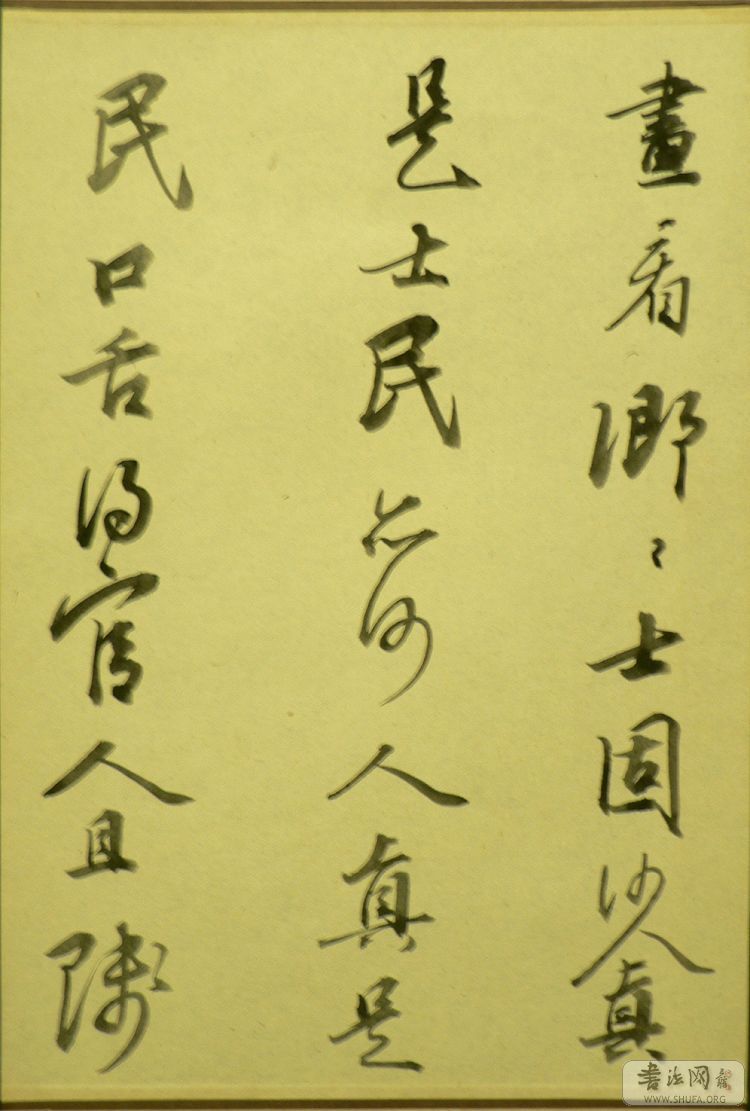 畫看卿〻士固何人真
是士民亦何人真是
民口舌得官人且賤
書法网
WWW.SHUFA.ORG